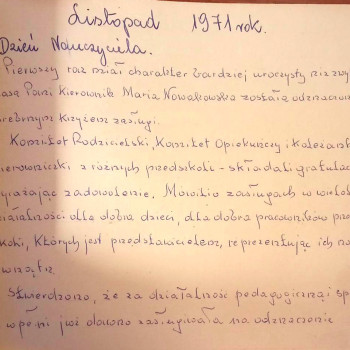 Listopad 1971 rok.
Dzień Nauczyciela.
Pierwszy raz miał charakter bardziej uroczysty niż zwy
asą Pani Kierownik Maria Nowakowska została odznaczon
srebrnym krzyżem zasługi.
Komitet Rodzicielski, Komitet Opiekuńczy i koleżanki
kierowniczki z różnych przedszkoli - składali gratulac
yrażając zadowolenie. Mówiło zasługach w wielol
działalności dla dobra dzieci, dla dobra pracowników prz
koli, których jest przedstawicielem, reprezentując ich na
wzątrz
Stwierdzono, że za działalność pedagogiczną i sp
w pełni już dawno zasługiwała na odznaczenie